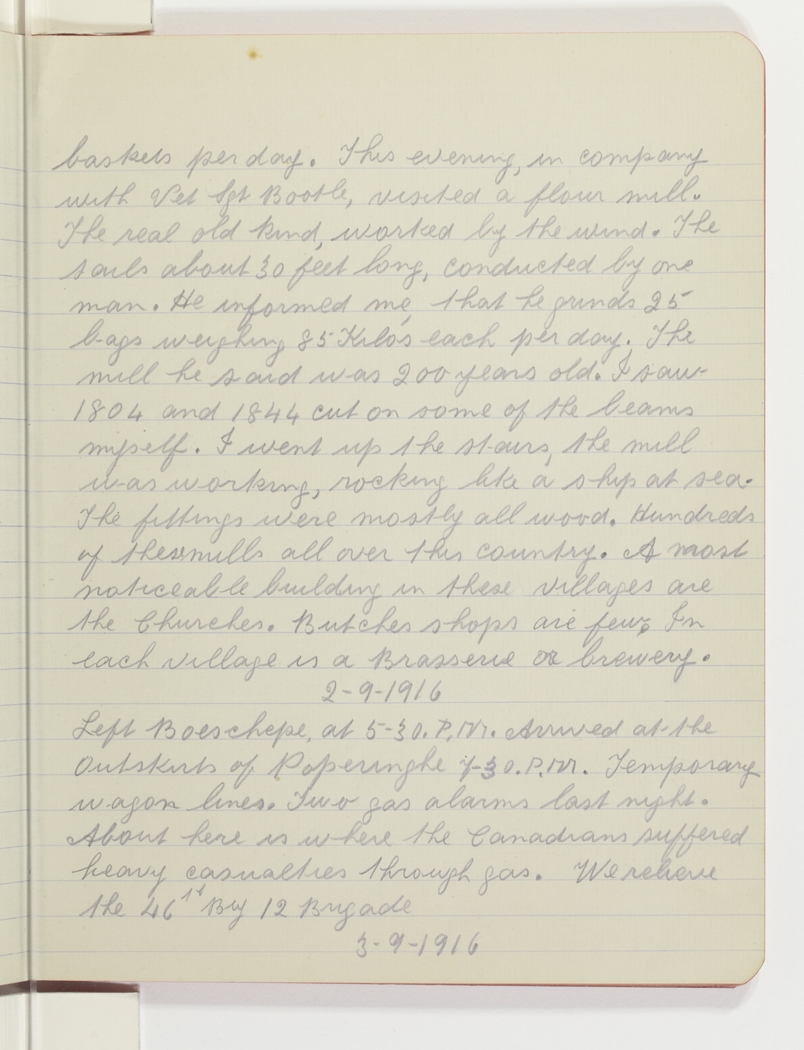 baskets per day. This evening, in company
with Vet Sgt Bootle, visited a flour mill.
The real old kind, worked by the wind. The
sails about 30 feet long, conducted by one
man. He informed me, that he grinds 25
bags weighing 85 Kilos each per day. The
mill he said was 200 years old. I saw
1804 and 1844 cut on some of the beams
myself. I went up the stairs, the mill
was working, rocking like a ship at sea.
The fittings were mostly all wood. Hundreds
of these mills all over this country. A most
noticeable building in these villages are
the Churches. Butches shops are few, In
each village is a Brasserie or brewery.
2-9-1916
Left Boeschepe, at 5-30. P.M. Arrived at the
Outskirts of Poperinghe 7-30. P.M. Temporary
wagon lines. Two gas alarms last night.
About here is where the Canadians suffered
heavy casualties through gas. We relieve
the 46 Bty 12 Brigade
3-9-1916